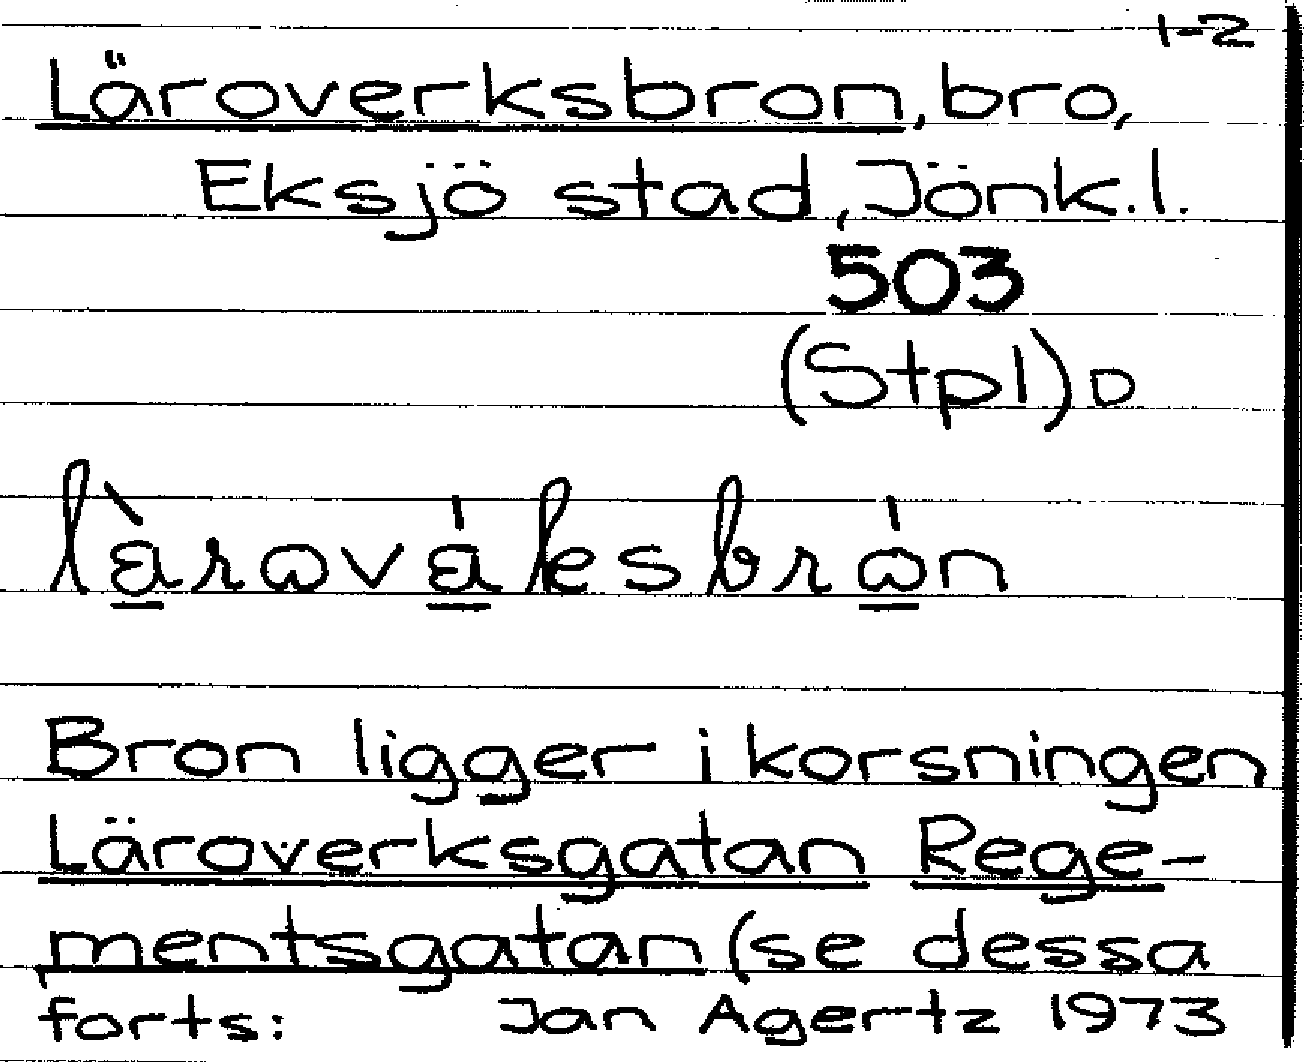 1-2
Läroverksbron, bro,
Eksjö stad, Jönk.l.
503
(Stpl)D
làrovákesbrón
Bron ligger i korsningen
Läroverksgatan Rege-
mentsgatan (se dessa
forts: Jan Agertz 1973